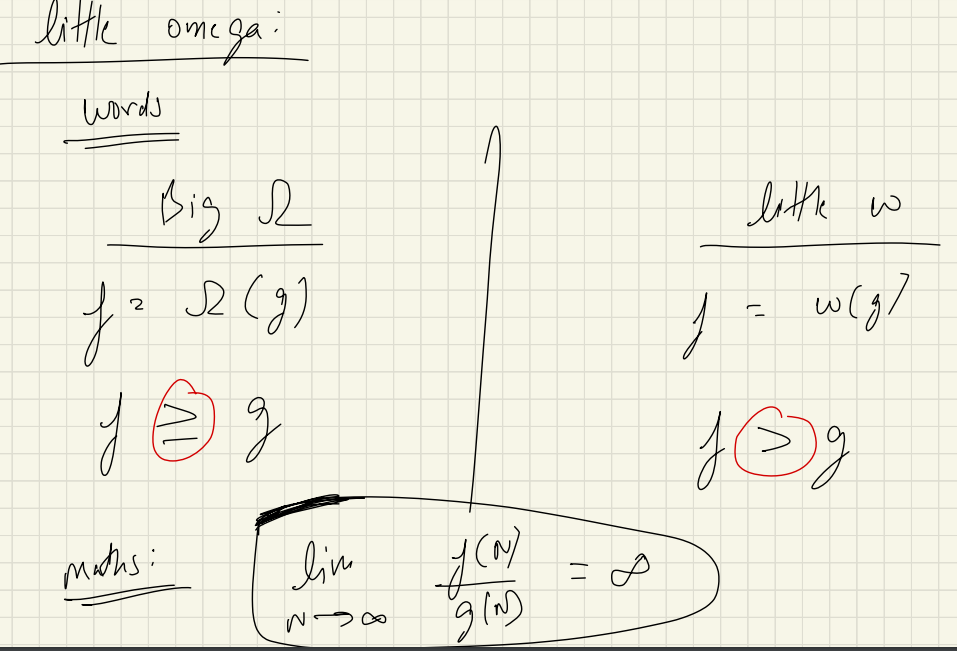 little omega:
words
Big Ω
f = Ω(g)
f ≥ g
little ω
f = ω(g)
f > g
maths:
lim N→∞ f(N)/g(N) = ∞